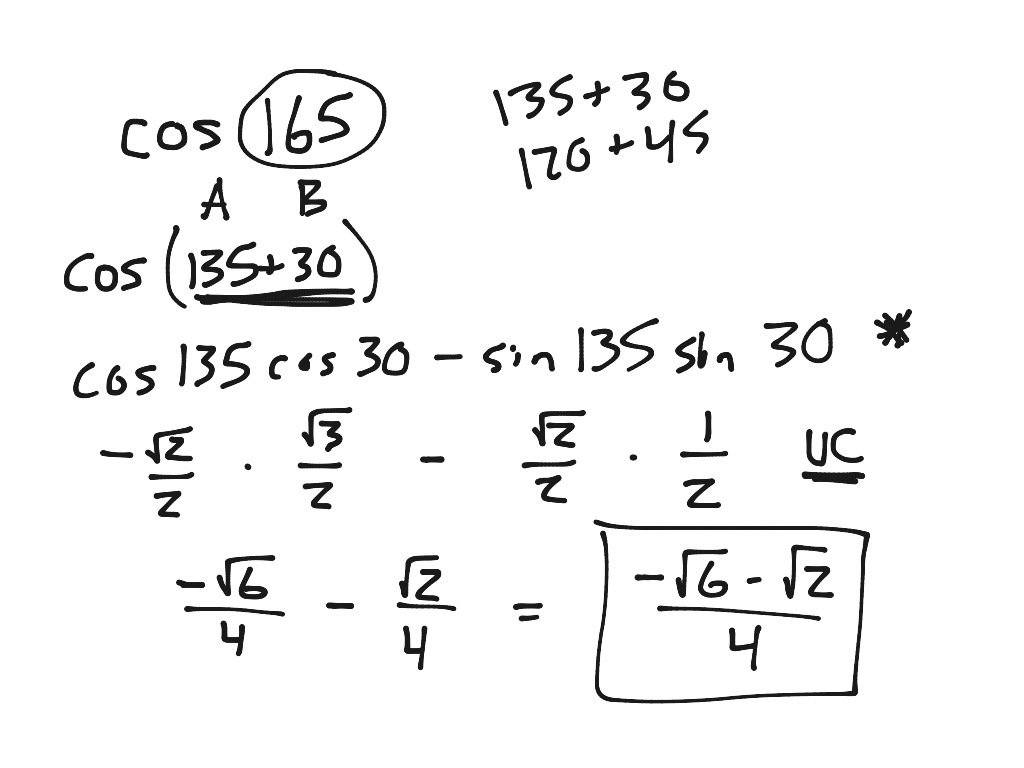 cos 165
135+30
120+45
A B
cos (135+30)
cos 135 cos 30 - sin 135 sin 30 *
-√2/2 · √3/2 - √2/2 · 1/2 UC
-√6/4 - √2/4 = -√6 - √2/4